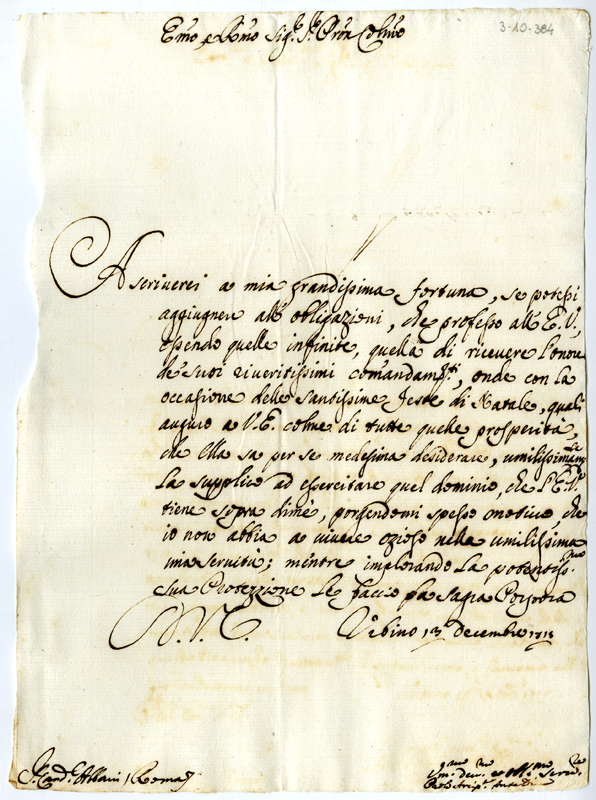 3-10-384
Emo e Rmo Sig.r Sr Pron Colmo
Ascriverei a mia grandissima fortuna, se potessi
aggiugnere all obligazioni, che professo all E.V.,
essendo quelle infinite, quella di ricevere l'onore
de suoi riveritissimi comandam.ti, onde con la
occasione delle santissime feste di Natale, quali
auguro a V.E. colme di tutte quelle prosperità,
che Ella sa per se medesima desiderare, umilissimam.te
La supplico ad essercitare quel dominio, che l'E.V.
tiene sopra di me, porgendomi spesso motivo, che
io non abbia a vivere ozioso nella umilissima
mia servitù; mentre implorando la potentiss.ma
sua Protezzione Le faccio la sagra Porpora
D. V. E. Urbino 13 decembre 1713
Sr Card.l Albani Roma
Um.o dev. et Obl.mo Serv.re